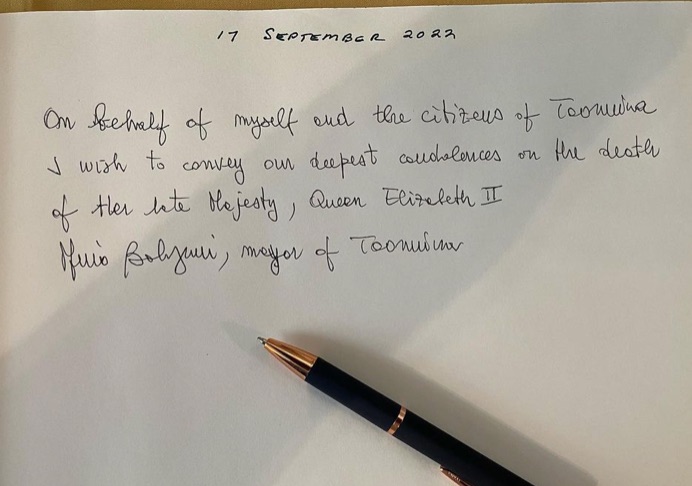 17 SEPTEMBER 2022
On behalf of myself and the citizens of Taormina
I wish to convey our deepest condolences on the death
of Her late Majesty, Queen Elizabeth II
mayor of Taormina